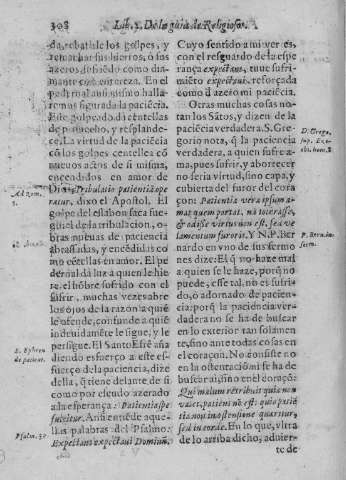 308
Lib. 5. De la guia de Religiosos.
da, rebatible los golpes, y
remachar sus hierros, ô sus
azeros
mante con entereza. En el
pedernal
remos figurada la paciẽcia.
Este golpeado, dà centellas
de prouecho, y resplande-
ce. La virtud de la paciẽcia
cõ los golpes centellea cõ
nueuos actos de si misma,
encendidos en amor de
Dios. Tribulatio patientiã ope
ratur, dixo el Apostol. El
golpe del eslabon saca fue-
go: el de la tribulacion, o-
bras nueuas de paciencia
abrassadas, y encẽdidas co
mo cẽtellas en amor. El pe
dernal dà luz a quien le hie
re, el hõbre sufrido con el
sufrir, muchas vezes abre
los ojos de la razon a quiẽ
le ofende, confunde a quiẽ
indignamẽte le sigue, y le
persigue. El Santo Efrẽ aña
diendo esfuerço a este es-
fuerço de la paciencia, dize
della, q̃ tiene delante de si
como por escudo azerado
a la esperança: Patientia spe
fulcitur. Antiẽnde aque-
llas palabras del Psalmo:
Expectans expectaui Dominũ.
Ad Rom.
S. Ephren
de patient.
Psalm. 39
Cuyo sentido a mi ver es,
con el resguardo de la espe
rança expectans, tuue sufri-
miẽto expectaui, reforçada
como d̃ azero mi paciẽcia.
Otras muchas cosas no-
tan los Sãtos, y dizen de la
paciẽcia verdadera. S. Gre-
gorio nota, q̃ la paciencia
verdadera, a quien sufre a-
ma, pues sufrir, y aborrecer
no seria virtud, sino capa, y
cubierta del furor del cora
çon: Patientia vera ipsum a-
mat quem portat, nã tolerare,
& odisse virtus non est, sed ve
lamentum furoris. Y N. P. Ber
nardo en vno de sus sermo
nes dize: El q̃ no haze mal
a quien se le haze, porq̃ no
puede, esse tal, no es sufri-
do, o adornado de pacien-
cia: porq̃ la paciencia ver-
dadera no se ha de buscar
en lo exterior tan solamen
te, sino ante todas cosas en
el coraçon. No consiste no
en la ostentaciõ ni se ha de
buscar ai, sino en el coraçõ:
Qui malum retribuit quia non
valet, patiens nõ est: quia patiẽ
tia non in ostensione quæritur,
sed in corde. En lo que, vltra
de lo arriba dicho, aduier-
te de
D. Grego.
sup. Eze-
chi. hom.
P. Bernar. in
serm.